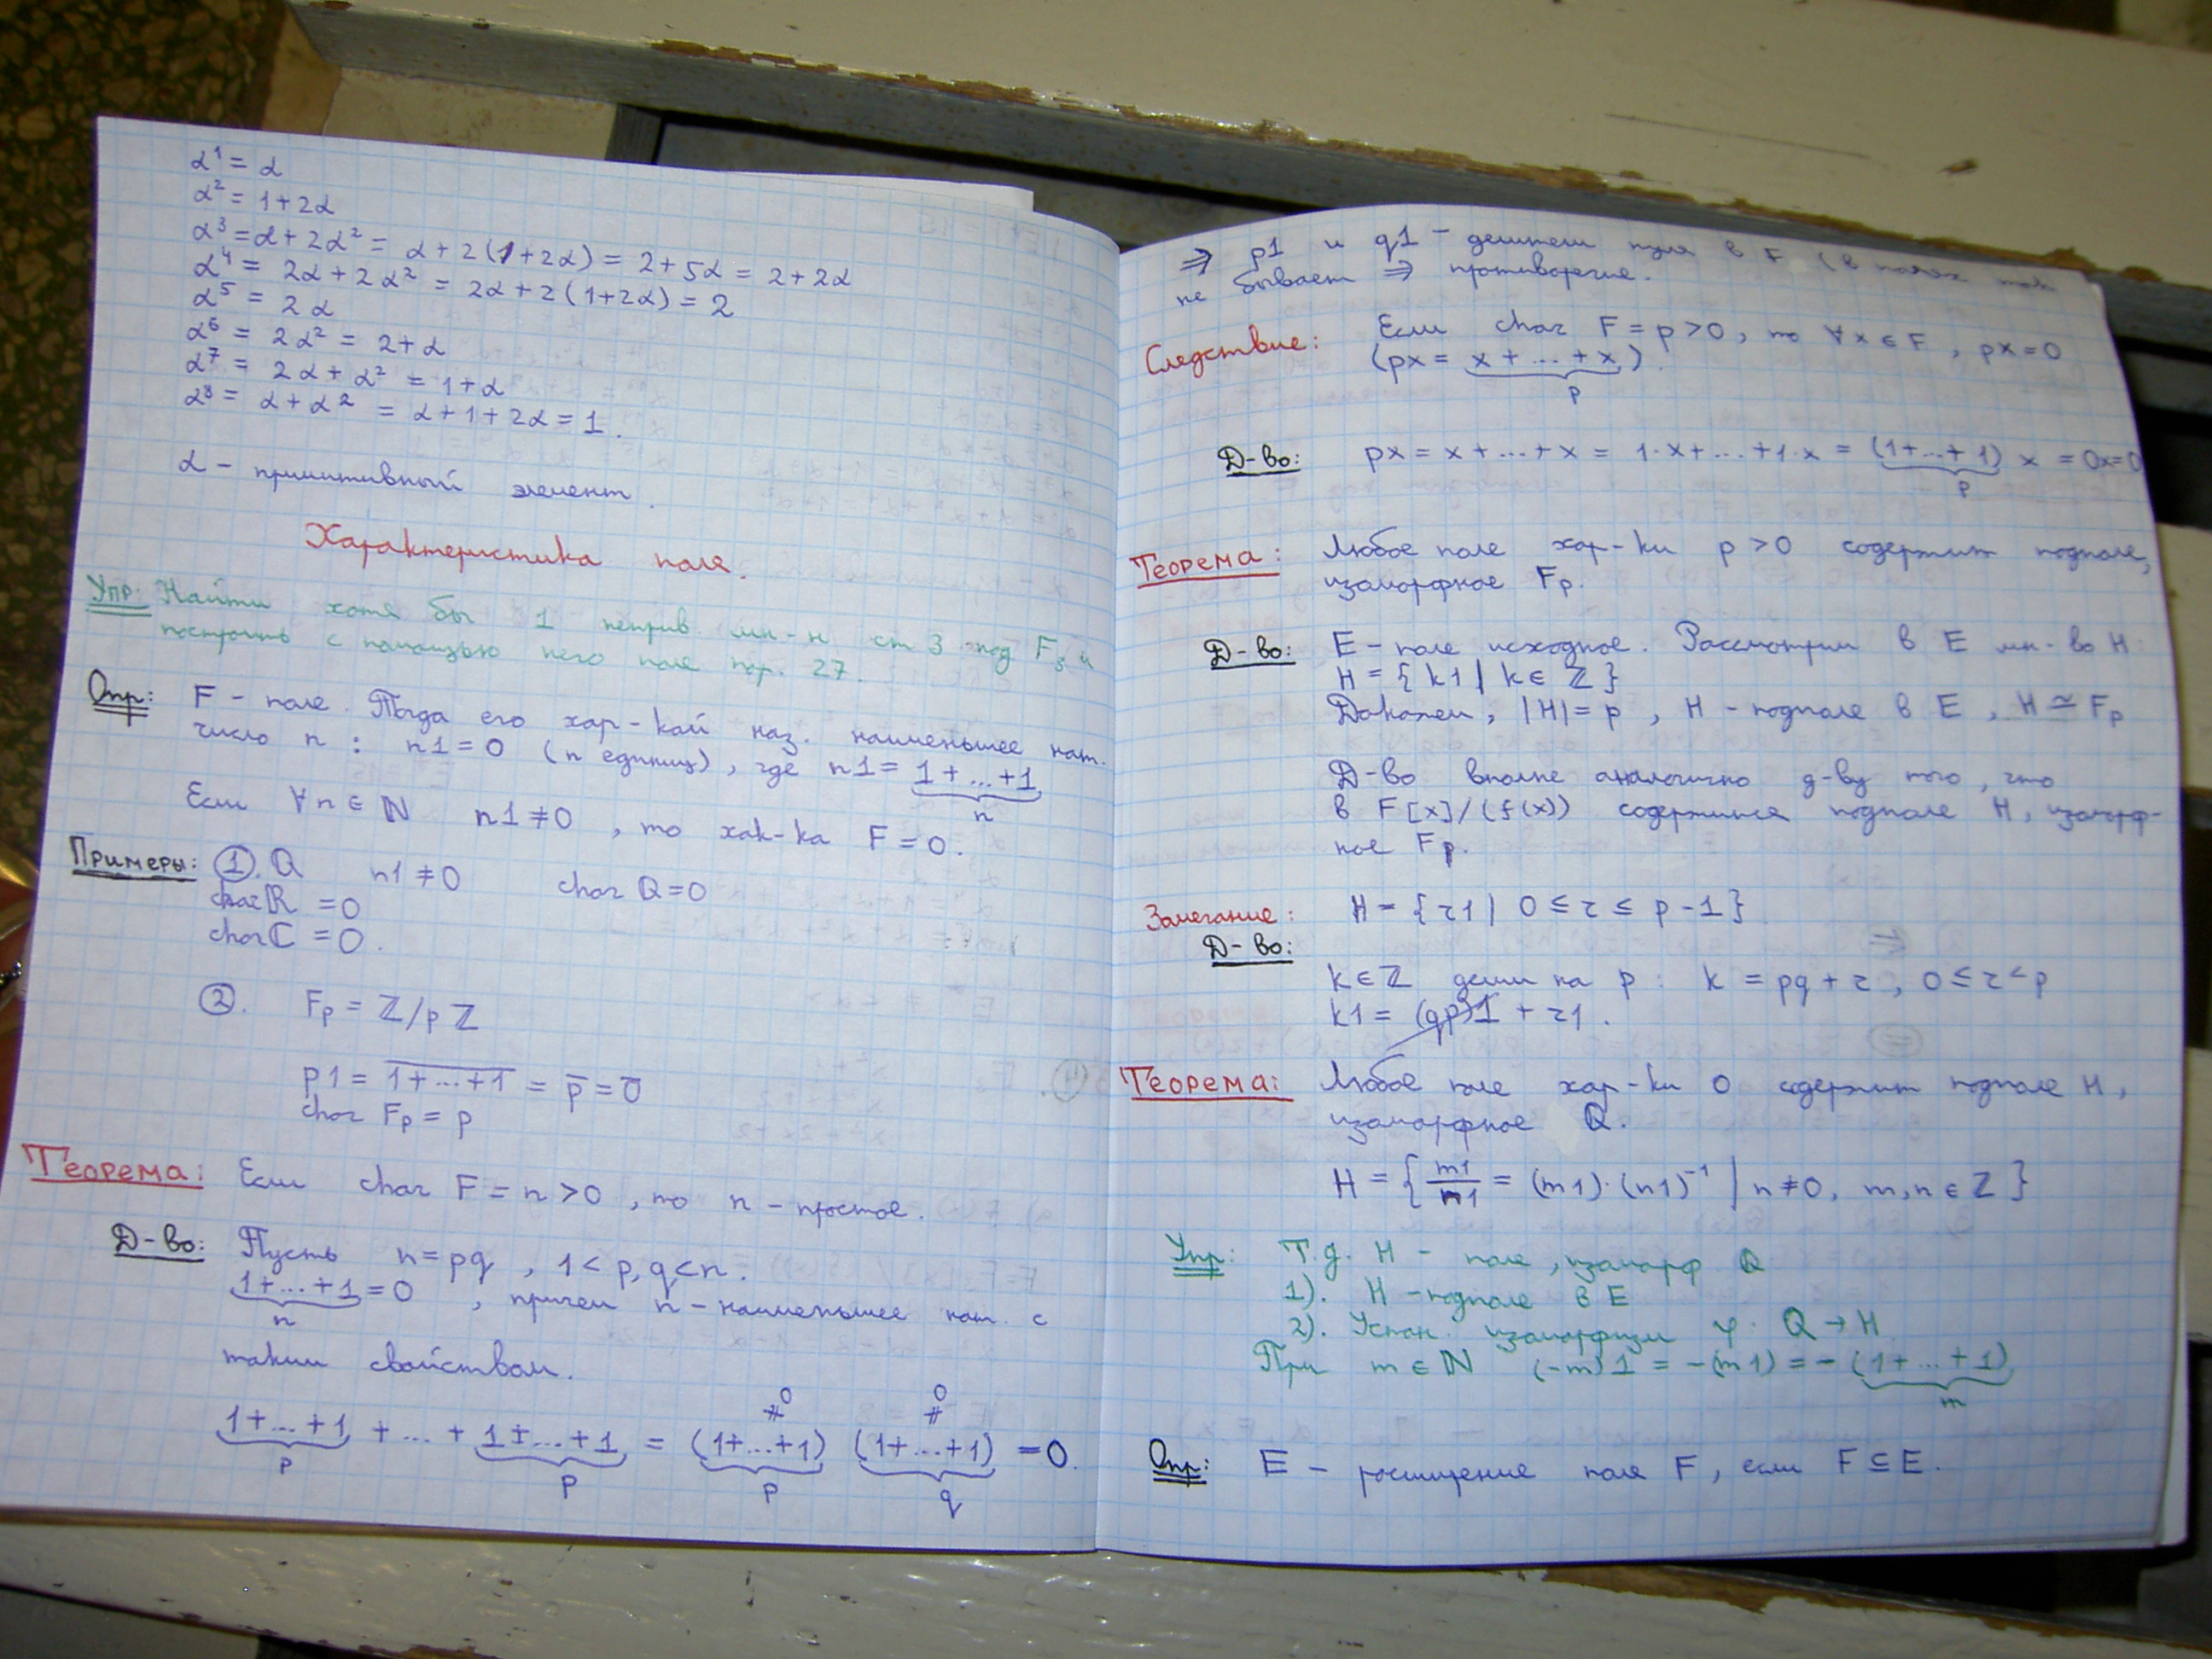 α¹ = α
α² = 1+2α
α³ = α+2α² = α+2(1+2α) = 2+5α = 2+2α
α⁴ = 2α+2α² = 2α+2(1+2α) = 2
α⁵ = 2α
α⁶ = 2α² = 2+α
α⁷ = 2α+α² = 1+α
α⁸ = α+α² = α+1+2α = 1.
α – примитивный элемент.
Характеристика поля.
Упр: Найти хотя бы 1 неприв. мн-н ст 3 над F₃ и
построить с помощью него поле пор. 27.
Опр: F – поле. Тогда его хар-кой наз. наименьшее нат.
число n : n1=0 (n единиц), где n1 = 1+...+1
n
Если ∀n∈ℕ n1≠0, то хак-ка F=0.
Примеры: ①. ℚ n1≠0 char ℚ=0
char ℝ = 0
char ℂ = 0.
②. Fp = ℤ/pℤ
p1 = 1+...+1 = p̄ = 0̄
char Fp = p
Теорема: Если char F = n > 0, то n – простое.
Д-во: Пусть n = pq, 1 < p,q < n.
1+...+1 = 0, причем n – наименьшее нат. с
n
таким свойством.
0 0
≠ ≠
1+...+1 + ... + 1+...+1 = (1+...+1) (1+...+1) = 0.
p p p q
⇒ p1 и q1 – делители нуля в F (в полях так
не бывает ⇒ противоречие.
Следствие: Если char F = p > 0, то ∀x∈F, px=0
(px = x+...+x)
p
Д-во: px = x+...+x = 1·x+...+1·x = (1+...+1) x = 0x=0
p
Теорема: Любое поле хар-ки p > 0 содержит подполе,
изоморфное Fp.
Д-во: E – поле исходное. Рассмотрим в E мн-во H:
H = {k1 | k∈ℤ}
Докажем, |H| = p, H – подполе в E, H ≃ Fp
Д-во вполне аналогично д-ву того, что
в F[x]/(f(x)) содержится подполе H, изоморф-
ное Fp.
Замечание: H = {r1 | 0 ≤ r ≤ p-1}
Д-во:
k∈ℤ делим на p: k = pq + r, 0 ≤ r < p
k1 = (qp)1 + r1.
Теорема: Любое поле хар-ки 0 содержит подполе H,
изоморфное ℚ.
H = { m1/n1 = (m1)·(n1)⁻¹ | n≠0, m,n∈ℤ }
Упр: Т.д. H – поле, изоморф ℚ
1). H – подполе в E
2). Устан. изоморфизм φ: ℚ → H
При m∈ℕ (-m)1 = -(m1) = -(1+...+1)
m
Опр: E – расширение поля F, если F ⊆ E.